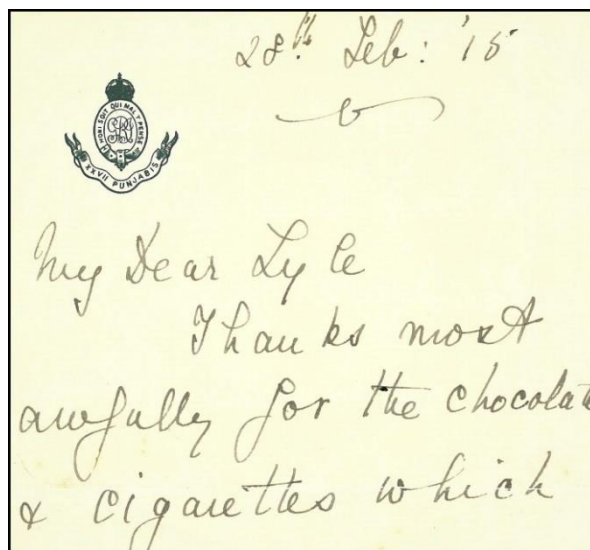 28th Feb: '15
HONI SOIT QUI MAL Y PENSE
XXVII PUNJABIS
My Dear Lyle
Thanks most
awfully for the chocolate
& cigarettes which